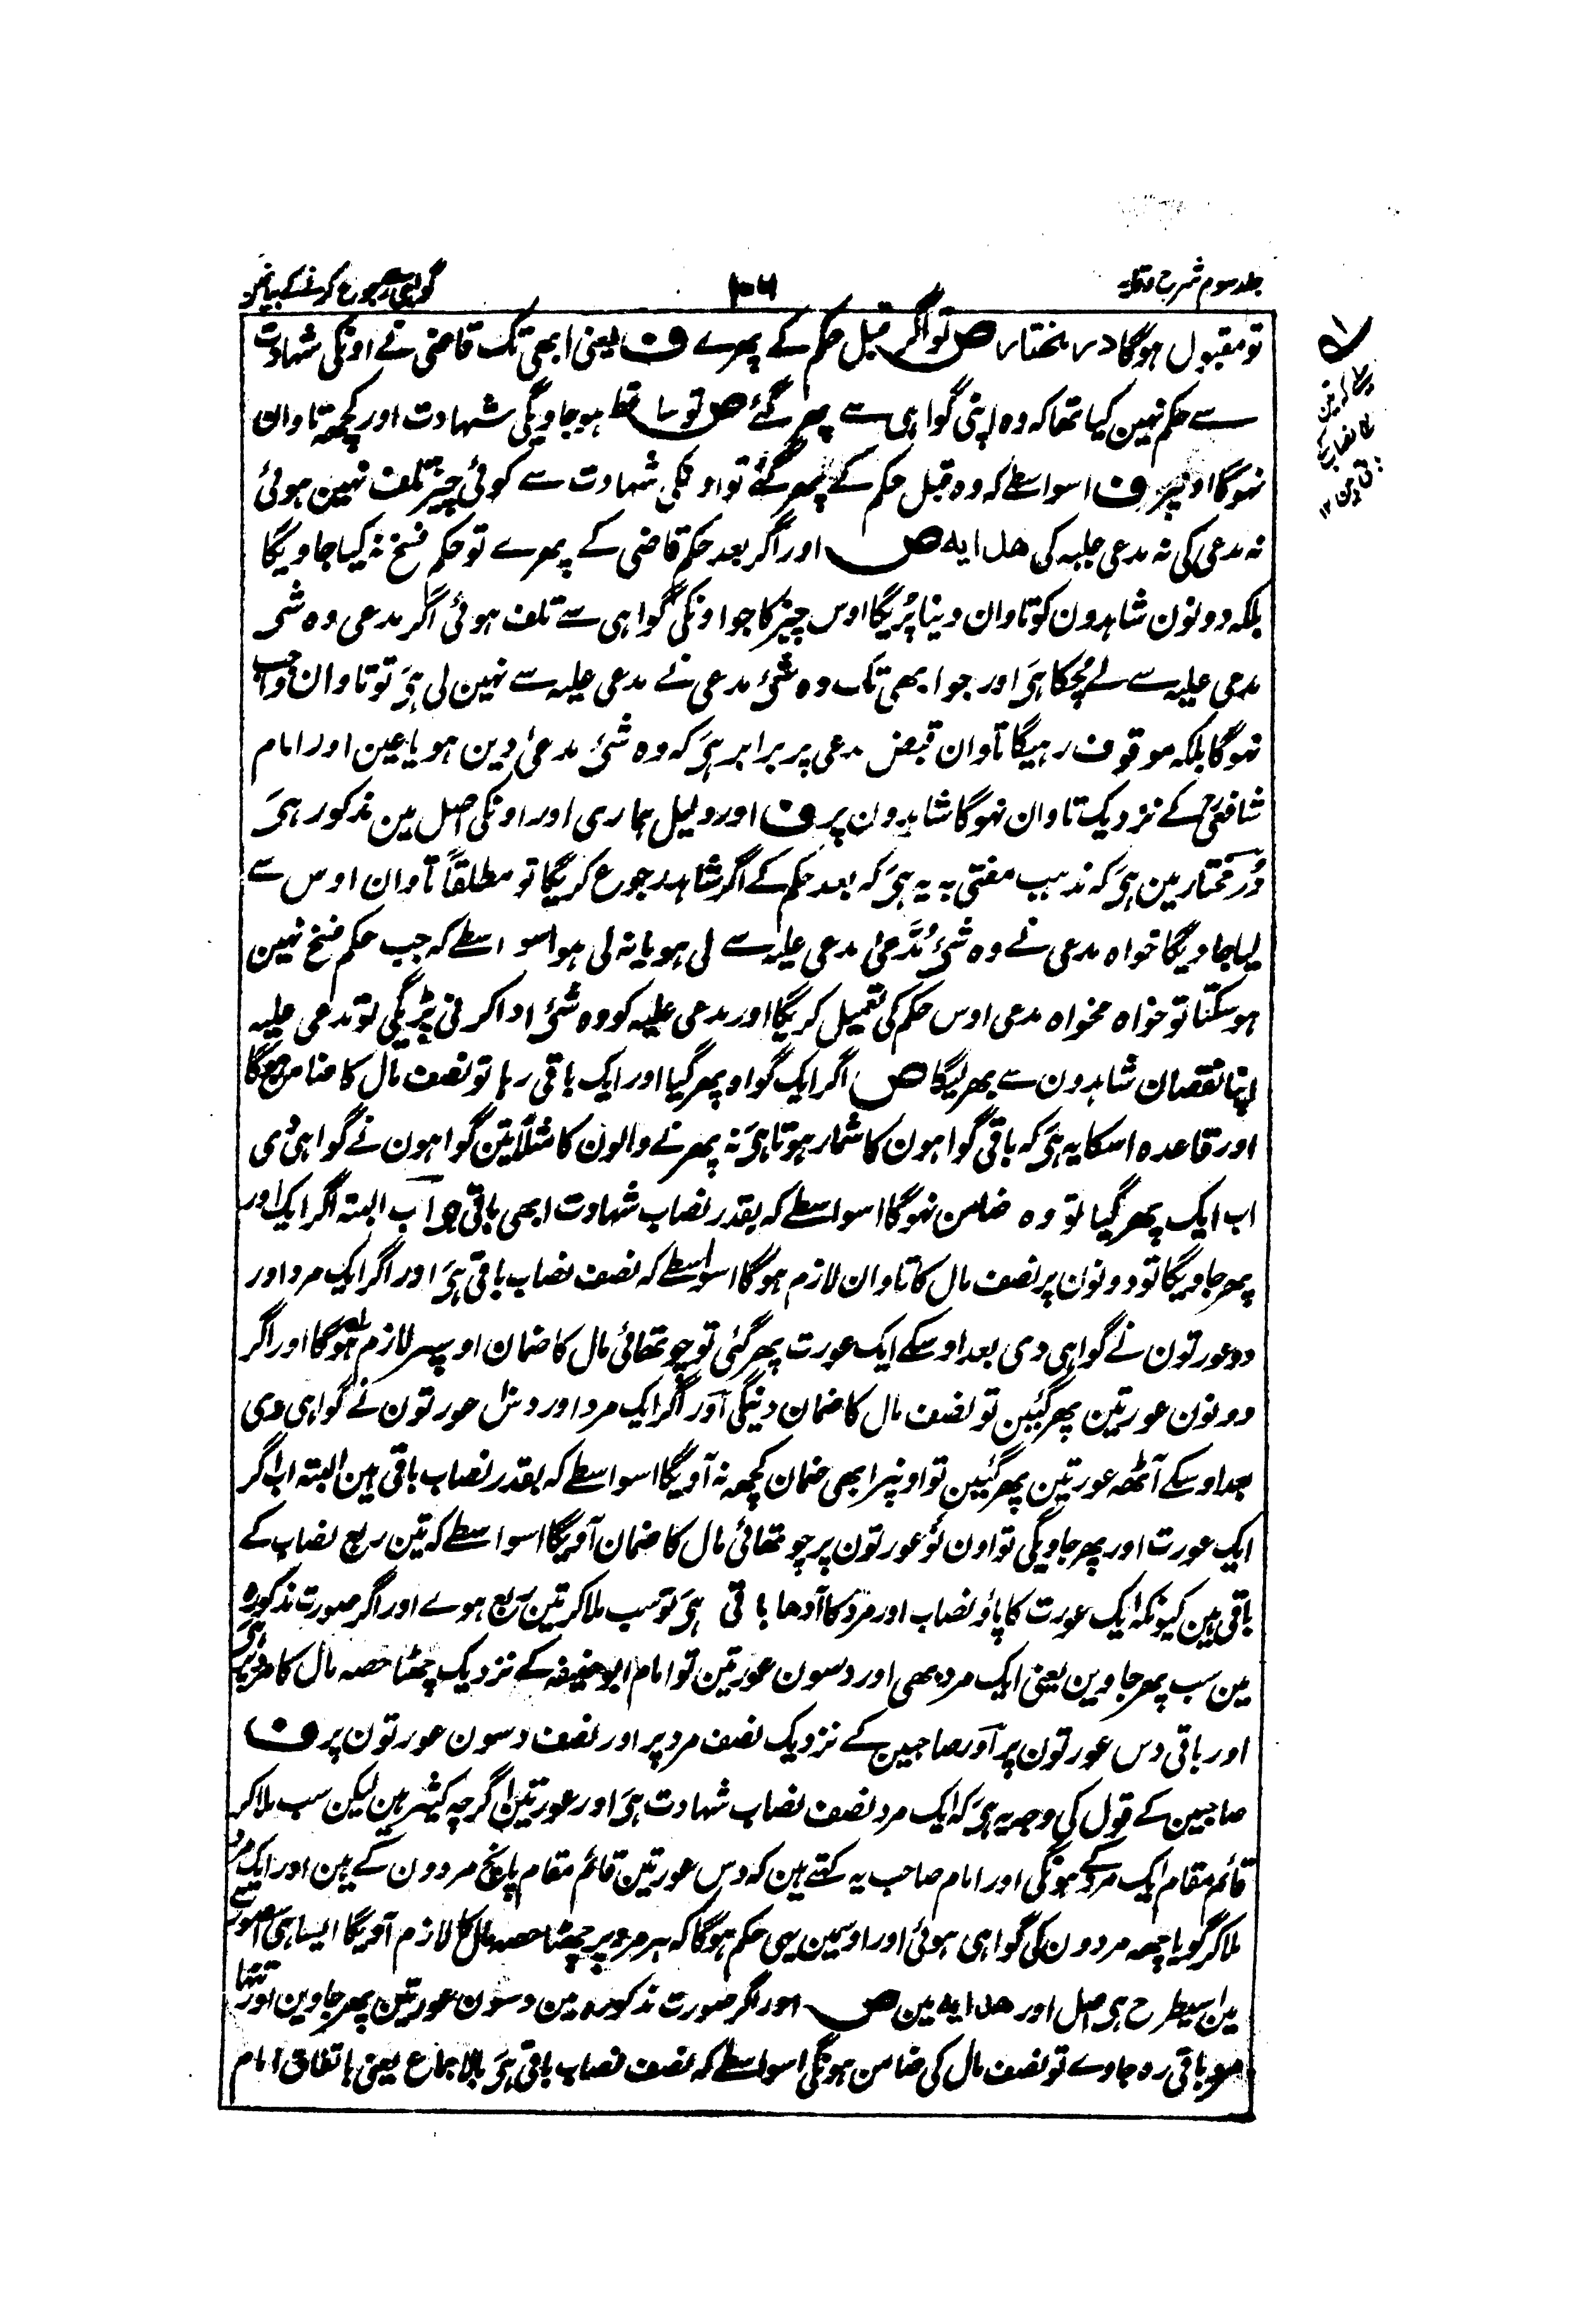 جلد سوم شرح وقایہ
۱۰۶
گواہی سے رجوع کرنے کے بیان مین
تو مقبول ہوگا در مختار ص تو اگر قبل حکم کے پھرے ف یعنی ابھی تک قاضی نے اونکی شہادت
سے حکم نہین کیا تھا کہ وہ اپنی گواہی سے پھر گئے ص تو ساقط ہو جاویگی شہادت اور کچھ تاوان
نہوگا اونپر ف اسواسطے کہ وہ قبل حکم کے پھر گئے تو اونکی شہادت سے کوئی چیز تلف نہین ہوئی
نہ مدعی کی نہ مدعی علیہ کی هدایہ ص اور اگر بعد حکم قاضی کے پھرے تو حکم فسخ نہ کیا جاویگا
بلکہ دونون شاہدون کو تاوان دینا پڑیگا اوس چیز کا جو اونکی گواہی سے تلف ہوئی اگر مدعی وہ شی
مدعی علیہ سے لے چکا ہی اور جو ابھی تک وہ شئ مدعی نے مدعی علیہ سے نہین لی ہی تو تاوان واجب
نہوگا بلکہ موقوف رہیگا تاوان قبض مدعی پر برابر ہی کہ وہ شئ مدعیٰ دین ہو یا عین اور امام
شافعیؒ کے نزدیک تاوان نہوگا شاہدون پر ف اور دلیل ہماری اور اونکی اصل مین مذکور ہی
دُرّمختار مین ہی کہ مذہب مفتی بہ یہ ہی کہ بعد حکم کے اگر شاہد رجوع کریگا تو مطلقاً تاوان اوس سے
لیا جاویگا خواہ مدعی نے وہ شئ مُدَّعیٰ مدعی علیہ سے لی ہو یا نہ لی ہو اسواسطے کہ جب حکم فسخ نہین
ہو سکتا تو خواہ مخواہ مدعی اوس حکم کی تعمیل کریگا اور مدعی علیہ کو وہ شئ ادا کرنی پڑیگی تو مدعی علیہ
اپنا نقصان شاہدون سے بھر لیگا ص اگر ایک گواہ پھر گیا اور ایک باقی رہا تو نصف مال کا ضامن ہوگا
اور قاعدہ اسکا یہ ہی کہ باقی گواہون کا شمار ہوتا ہی نہ پھرنے والون کا مثلاً تین گواہون نے گواہی دی
اب ایک پھر گیا تو وہ ضامن نہوگا اسواسطے کہ بقدر نصاب شہادت ابھی باقی ہی اب البتہ اگر ایک اور
پھر جاویگا تو دونون پر نصف مال کا تاوان لازم ہوگا اسواسطے کہ نصف نصاب باقی ہی اور اگر ایک مرد اور
دو عورتون نے گواہی دی بعد اوسکے ایک عورت پھر گئی تو چوتھائی مال کا ضمان اوسپر لازم ہوگا اور اگر
دونون عورتین پھر گئین تو نصف مال کا ضمان دینگی اور اگر ایک مرد اور دس عورتون نے گواہی دی
بعد اوسکے آٹھ عورتین پھر گئین تو اونپر ابھی ضمان کچھ نہ آویگا اسواسطے کہ بقدر نصاب باقی ہین البتہ اب اگر
ایک عورت اور پھر جاویگی تو اون نو عورتون پر چوتھائی مال کا ضمان آویگا اسواسطے کہ تین ربع نصاب کے
باقی ہین کیونکہ ایک عورت کا پاؤ نصاب اور مرد کا آدھا باقی ہی تو سب ملا کر تین ربع ہوے اور اگر صورت مذکورہ
مین سب پھر جاوین یعنی ایک مرد بھی اور دسون عورتین تو امام ابوحنیفہ کے نزدیک چھٹا حصہ مال کا مرد پر ہی
اور باقی دس عورتون پر اور صاحبین کے نزدیک نصف مرد پر اور نصف دسون عورتون پر ف
صاحبین کے قول کی وجہ یہ ہی کہ ایک مرد نصف نصاب شہادت ہی اور عورتین اگرچہ کثیر ہین لیکن سب ملا کر
قائم مقام ایک مرد کے ہونگی اور امام صاحب یہ کہتے ہین کہ دس عورتین قائم مقام پانچ مردون کے ہین اور ایک مرد
ملا کر گویا چھہ مردون کی گواہی ہوئی اور اوسمین یہی حکم ہوگا کہ ہر مرد پر چھٹا حصہ مال کا لازم آویگا ایسا ہی اس صورت
مین اسیطرح ہی اصل اور هدایہ مین ص اور اگر صورت مذکورہ مین دسون عورتین پھر جاوین اور تنہا
مرد باقی رہ جاوے تو نصف مال کی ضامن ہونگی اسواسطے کہ نصف نصاب باقی ہی بالاجماع یعنی باتفاق امام